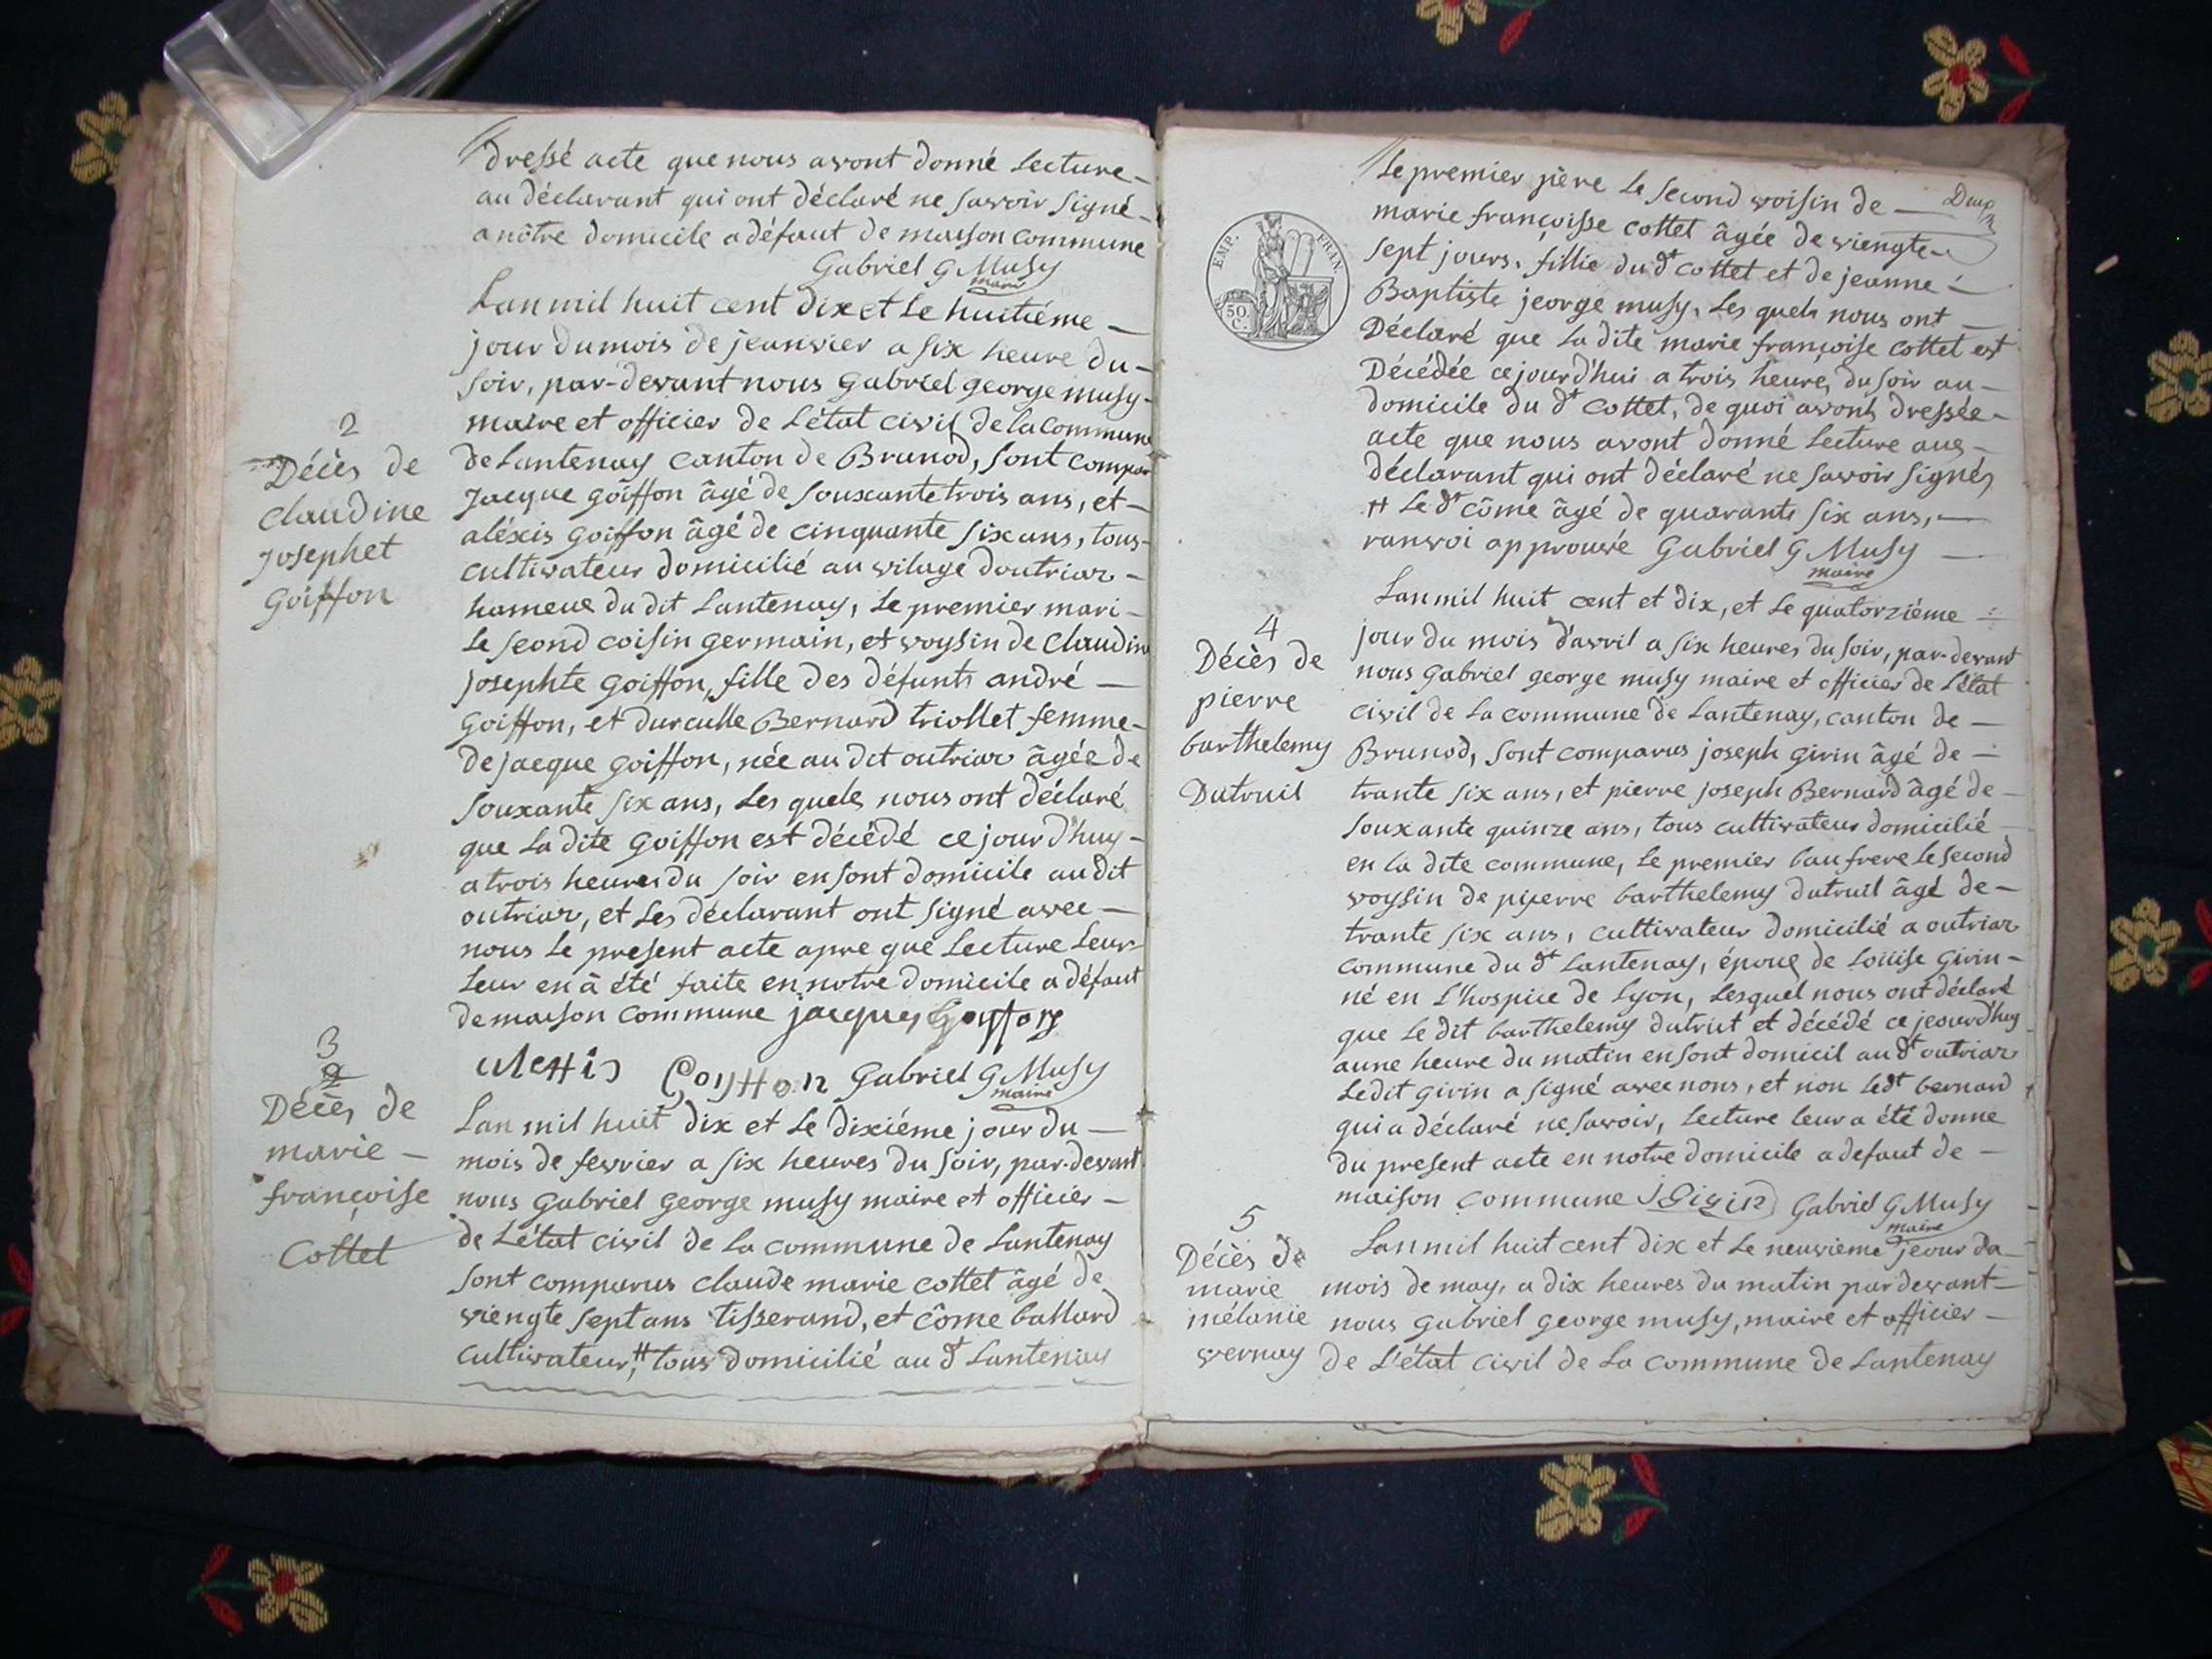 dressé acte que nous avont donné Lecture
au déclarant qui ont déclaré ne savoir signé
a nôtre domicile a défaut de maison commune
Gabriel G Musy
maire
Lan mil huit cent dix et Le huitiéme
jour du mois de jeanvier a six heure du
soir, par-devant nous Gabriel george musy
maire et officier de L'état civil de la commune
2
Décès de
claudine
Josephet
Goiffon
de Lantenay canton de Brunod, sont compar
Jacque Goiffon âgé de souxante trois ans, et
aléxis Goiffon âgé de cinquante six ans, tous
cultivateur domicilié au vilage doutriar
hameue du dit Lantenay, Le premier mari
Le seond coisin germain, et voysin de Claudine
Josephte Goiffon, fille des défunts andré
Goiffon, et durculle Bernard triollet femme
de Jacque Goiffon, née au dit outriar âgée de
souxante six ans, Les quels nous ont déclaré
que La dite Goiffon est décédé ce jour d'huy
a trois heures du soir en sont domicile au dit
outriar, et Les déclarant ont signé avec
nous Le present acte apre que Lecture Leur
Leur en à été faite en notre domicile a défaut
de maison commune jacques Goyffong
Alexis Goyffon Gabriel G Musy
maire
3
2
Décès de
marie
françoise
Cottet
Lan mil huit dix et Le dixiéme jour du
mois de fevrier a six heures du soir, par-devant
nous Gabriel George musy maire et officier
de L'état civil de La commune de Lantenay
sont comparus claude marie cottet âgé de
viengte sept ans tisserand, et côme ballard
cultivateur,# tous domicilié au dt Lantenay
Le premier père Le second voisin de
marie françoisse cottet âgée de viengte
sept jours, fillie du dt cottet et de jeanne
Baptiste jeorge musy, Les quels nous ont
Déclaré que La dite marie françoise cottet est
Décédée ce jourd'hui a trois heures du soir au
domicile du dt Cottet, de quoi avont dressée
acte que nous avont donné Lecture aus
déclarant qui ont déclaré ne savoir signés
# Le dt côme âgé de quarante six ans,
ranvoi approuvé Gabriel G Musy
maire
EMP. FRAN.
50.
C.
4
Décès de
pierre
barthelemy
Dutruil
Lan mil huit cent et dix, et Le quatorziéme
jour du mois d'avril a six heures du soir, par-devant
nous Gabriel george musy maire et officier de L'état
civil de La commune de Lantenay, canton de
Brunod, sont comparus joseph Girin âgé de
trante six ans, et pierre joseph Bernard âgé de
souxante quinze ans, tous cultivateur domicilié
en La dite commune, Le premier baufrere Le second
voysin de pierre barthelemy dutruil âgé de
trante six ans, cultivateur domicilié a outriar
commune du dt Lantenay, époue de Loüise Girin
né en L'hospice de Lyon, Lesquel nous ont déclaré
que Le dit barthelemy dutruit et décédé ce jeourd'huy
aune heure du matin en sont domicil au dt outriar
Ledit Girin a signé avec nous, et non Ledt bernard
qui a déclaré ne savoir, Lecture leur a été donne
du present acte en notre domicile a defaut de
maison commune J Girin Gabriel G Musy
maire
5
Décès de
marie
mélanie
vernay
Lan mil huit cent dix et Le neuvieme jeour du
mois de may, a dix heures du matin par devant
nous Gabriel george musy, maire et officier
de L'état civil de La commune de Lantenay